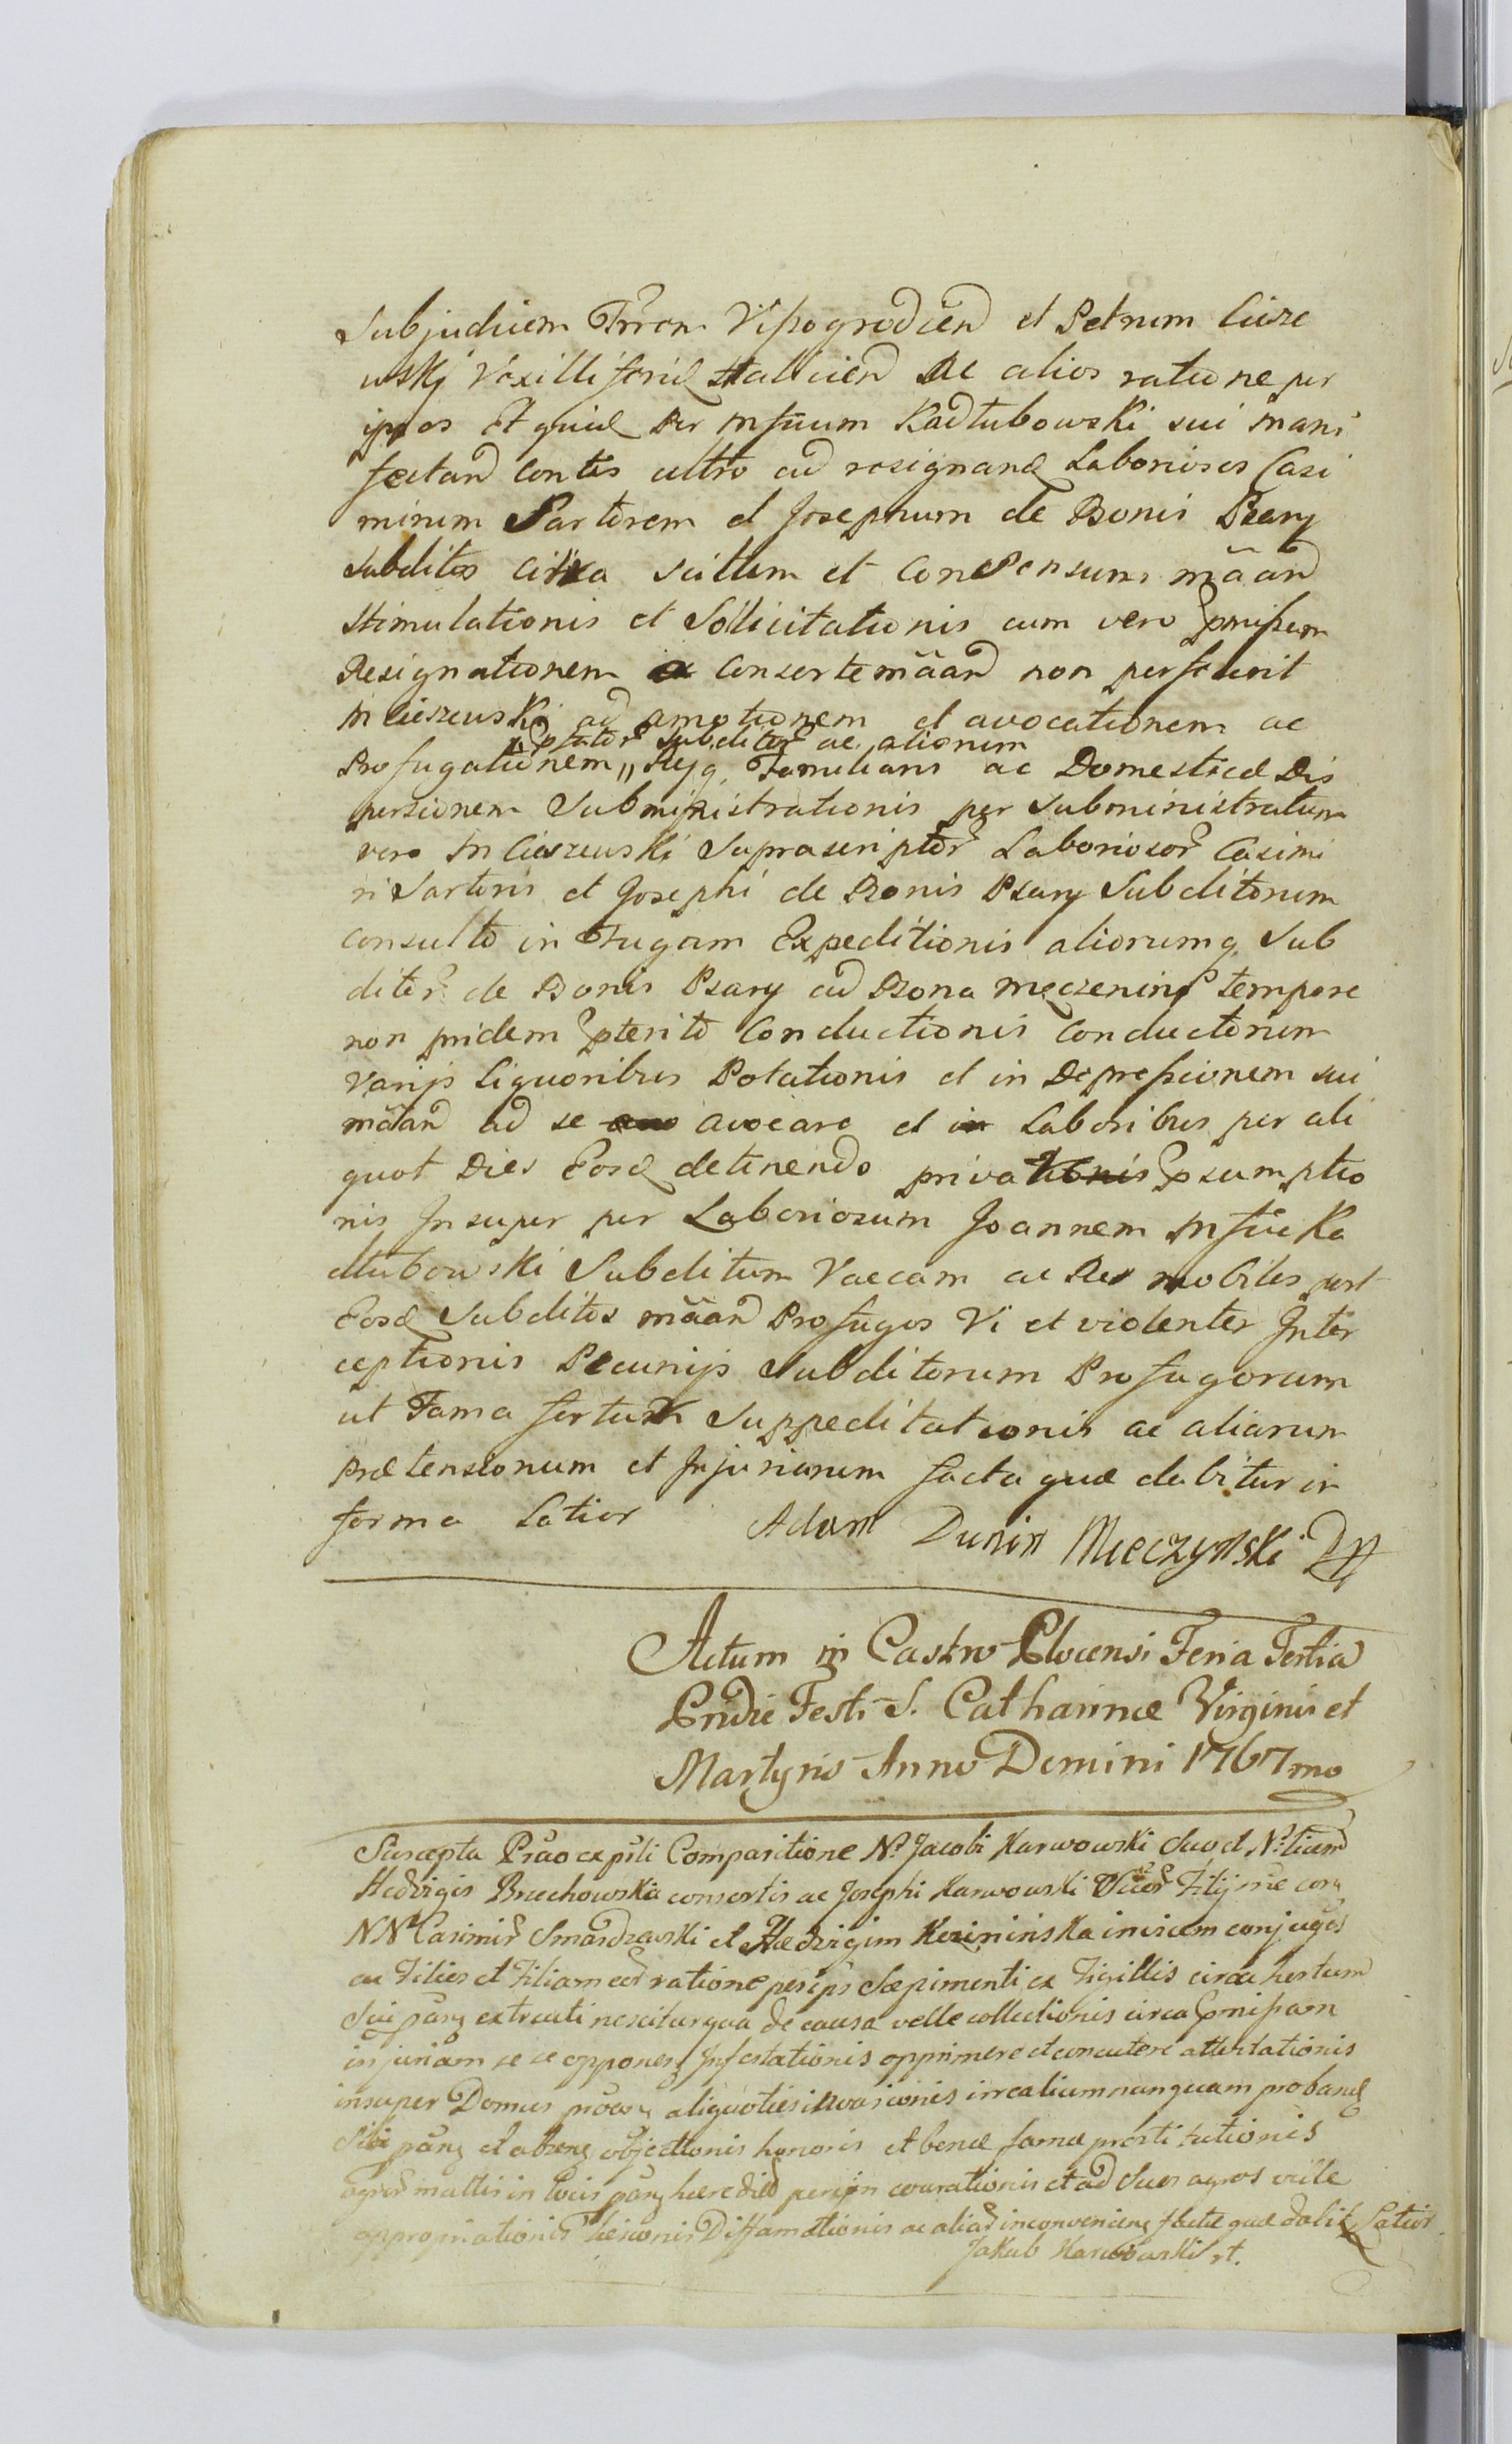 Subjudicem Trren Vipogrodien et Petrum Ciesze
wskj Vexilliferid Halicien Ac alios ratione per
ipsos et quid per Mfcum Kadłubowski sui mani
festan contis ultro ad resignand Laboriosos Casi
mirum Sartorem et Josephum de Bonis Psary
subditos citra scitum et Consensum mãan
stimulationis et Sollicitationis cum vero pmissam
Resignationem a Consorte mãan non perfecerit
M Cieszewski ad amotionem et avocationem ac
ptator subditor ac aliorum
Profugationem,, Rejq Familiaris ac Domesticæ Dis
persionem Subministrationis per Subministratum
vero M Cieszewski Suprascriptor Laboriosor Casimi
ri Sartoris et Josephi de Bonis Psary Subditorum
consulto in Fugam Expeditionis aliorumq Sub
ditor de Bonis Psary ad Bona Męczenino tempore
non pridem pterito Conductionis Conductorum
Varijs Liquoribus Potationis et in Depressionem sui
mãan ad se avocare et in Laboribus per ali
quot Dies Eosd detinendo privationis psumptio
nis Insuper per Laboriosum Joannem Mfici Ka
dłubowski Subditum Vaccam ac Res mobiles post
Eosd Subditos mãan Profugos Vi et violenter Inter
ceptionis Pecunijs Subditorum Profugorum
ut Fama fertur Suppeditationis ac aliarum
prætensionum et Injuriarum facta quæ dabitur in
forma Latior Adam Dunin Mieczynski
Actum in Castro Plocensi Feria Tertia
Pridie Festi S. Catharinæ Virginis et
Martyris Anno Domini 1767mo
Suscepta Comparitione N. Jacobi Karwowski suo et N.
Hedvigis Brzechowskie consortis ac Josephi Karwowski Filij
NN Casimir Smardzewski et Hedvigim Kozininska invicem conjuges
ac Filios et Filiam eor ratione per ips Sæpimenti ex Tigillis circa hortum
Sui extructi nescitur qua de causa velle collectionis circa pmissam
injuriam se se opponen Infestationis opprimere et concutere attentationis
insuper Domus aliquoties invasionis in nunquam proband
Sibi et objectionis honoris et benæ famæ prostitutionis
agror multis in locis et ad suos agros velle
appropriationis Diffamationis ac aliar inconvenien factæ quæ dabit Latior
Jakub Karwowski